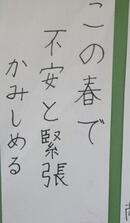 この春で
不安と緊張
かみしめる